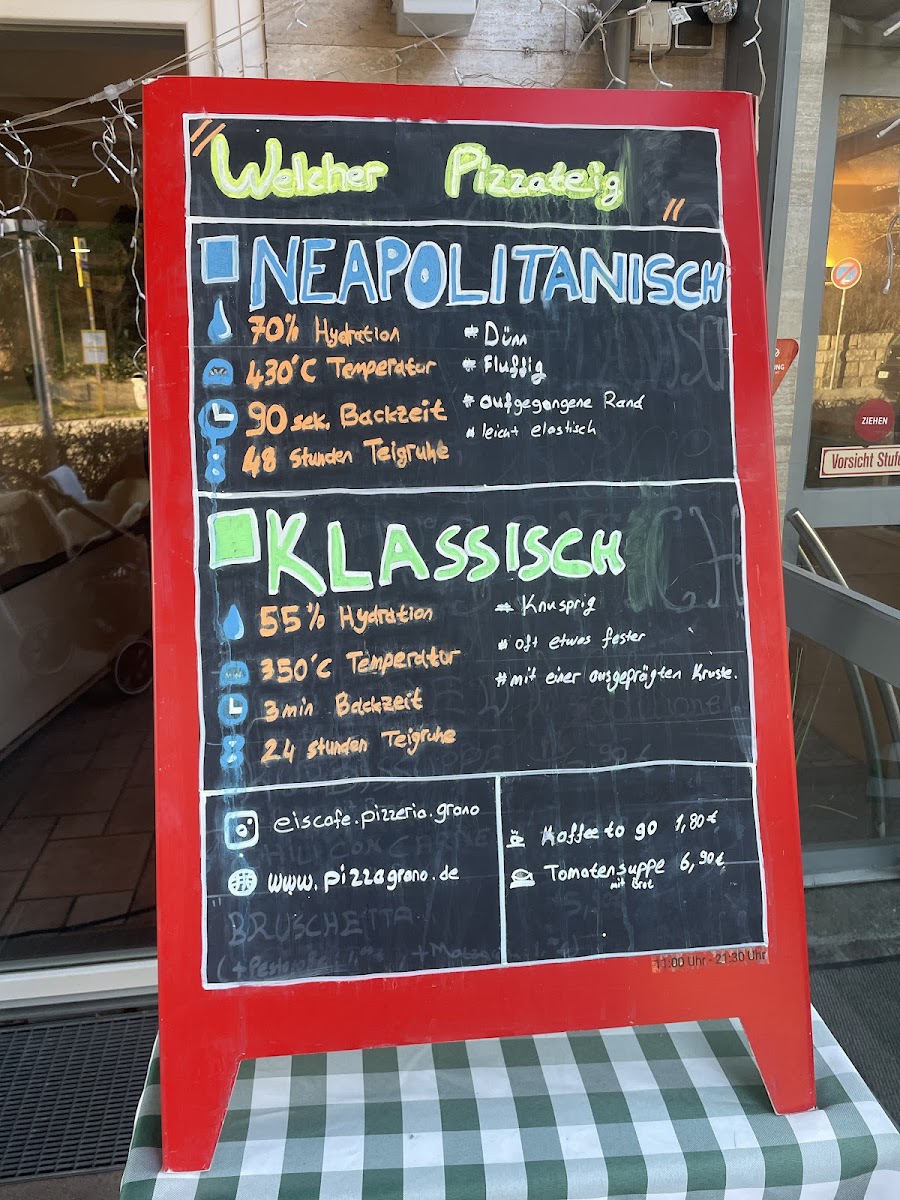 Welcher Pizzateig
NEAPOLITANISCH
70% Hydration
430°C Temperatur
90 sek. Backzeit
48 Stunden Teigruhe
* Dünn
* Fluffig
* aufgegangene Rand
* leicht elastisch
KLASSISCH
55% Hydration
350°C Temperatur
3 min Backzeit
24 stunden Teigruhe
* Knusprig
* oft etwas fester
* mit einer ausgeprägten Kruste.
eiscafe.pizzeria.grano
www.pizzagrano.de
Kaffee to go 1,80€
Tomatensuppe 6,90€
mit Brot
BRUSCHETTA
11:00 Uhr - 21:30 Uhr
ZIEHEN
Vorsicht Stufe